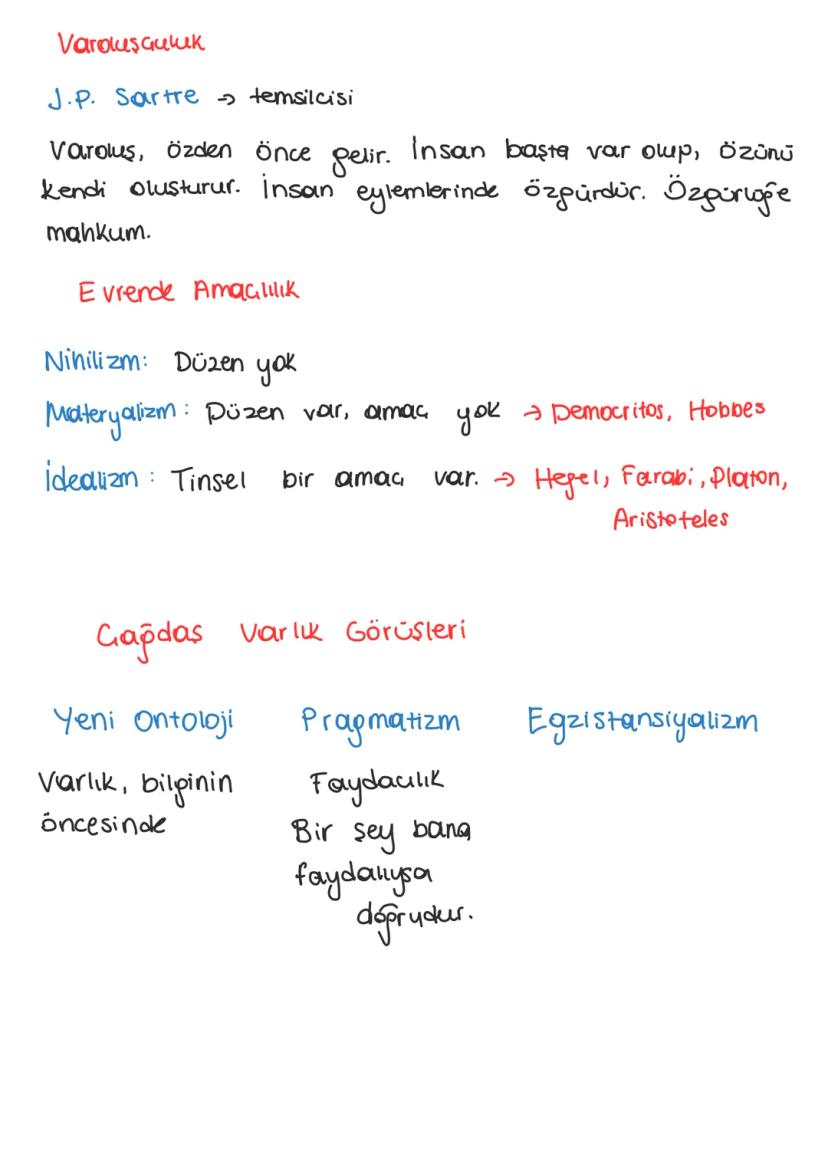 Varoluşçuluk
J.P. Sartre → temsilcisi
Varoluş, özden önce gelir. İnsan başta var olup, özünü
kendi oluşturur. İnsan eylemlerinde özgürdür. Özgürlüğe
mahkum.
Evrende Amaçlılık
Nihilizm: Düzen yok
Materyalizm: Düzen var, amaç yok → Democritos, Hobbes
İdealizm: Tinsel bir amaç var. → Hegel, Farabi, Platon,
Aristoteles
Çağdaş Varlık Görüşleri
Yeni Ontoloji Pragmatizm Egzistansiyalizm
Varlık, bilginin Faydacılık
öncesinde Bir şey bana
faydalıysa
doğrudur.